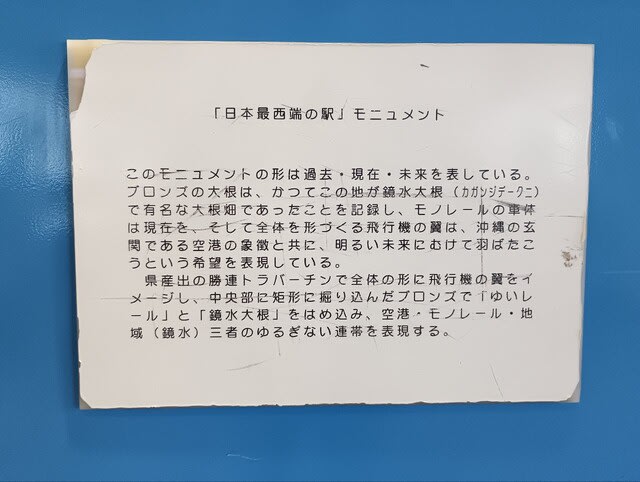 「日本最西端の駅」モニュメント
このモニュメントの形は過去・現在・未来を表している。
ブロンズの大根は、かつてこの地が鏡水大根（カガンジデークニ）
で有名な大根畑であったことを記録し、モノレールの車体
は現在を、そして全体を形づくる飛行機の翼は、沖縄の玄
関である空港の象徴と共に、明るい未来にむけて羽ばたこ
うという希望を表現している。
県産出の勝連トラバーチンで全体の形に飛行機の翼をイ
メージし、中央部に矩形に掘り込んだブロンズで「ゆいレ
ール」と「鏡水大根」をはめ込み、空港・モノレール・地
域（鏡水）三者のゆるぎない連帯を表現する。